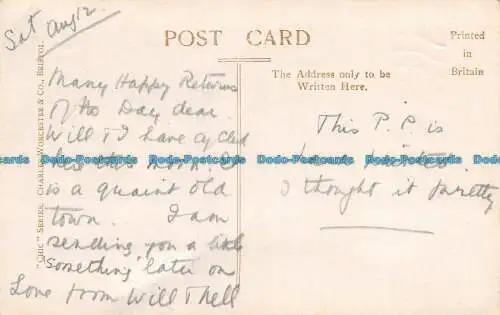 Sat Aug 12.
POST CARD
Printed
in
Britain
The Address only to be
Written Here.
"CHIC" SERIES. CHARLES WORCESTER & CO., BRISTOL.
Many Happy Returns
of the Day dear.
Will & I have cycled
here this morning
is a quaint old
town. I am
sending you a little
something later on
Love from Will & Nell
This P.P. is
I thought it pretty
Dodo-Postcards Dodo-Postcards Dodo-Postcards Dodo-Postcards